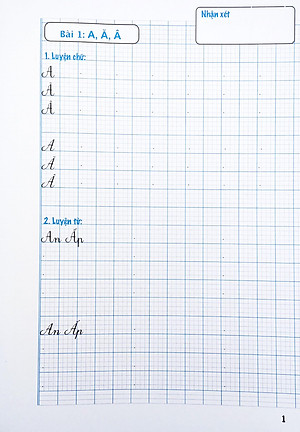 Nhận xét
Bài 1: A, Ă, Â
1. Luyện chữ:
A
Ă
Â
A
Ă
Â
2. Luyện từ:
An Ấp
An Ấp
1